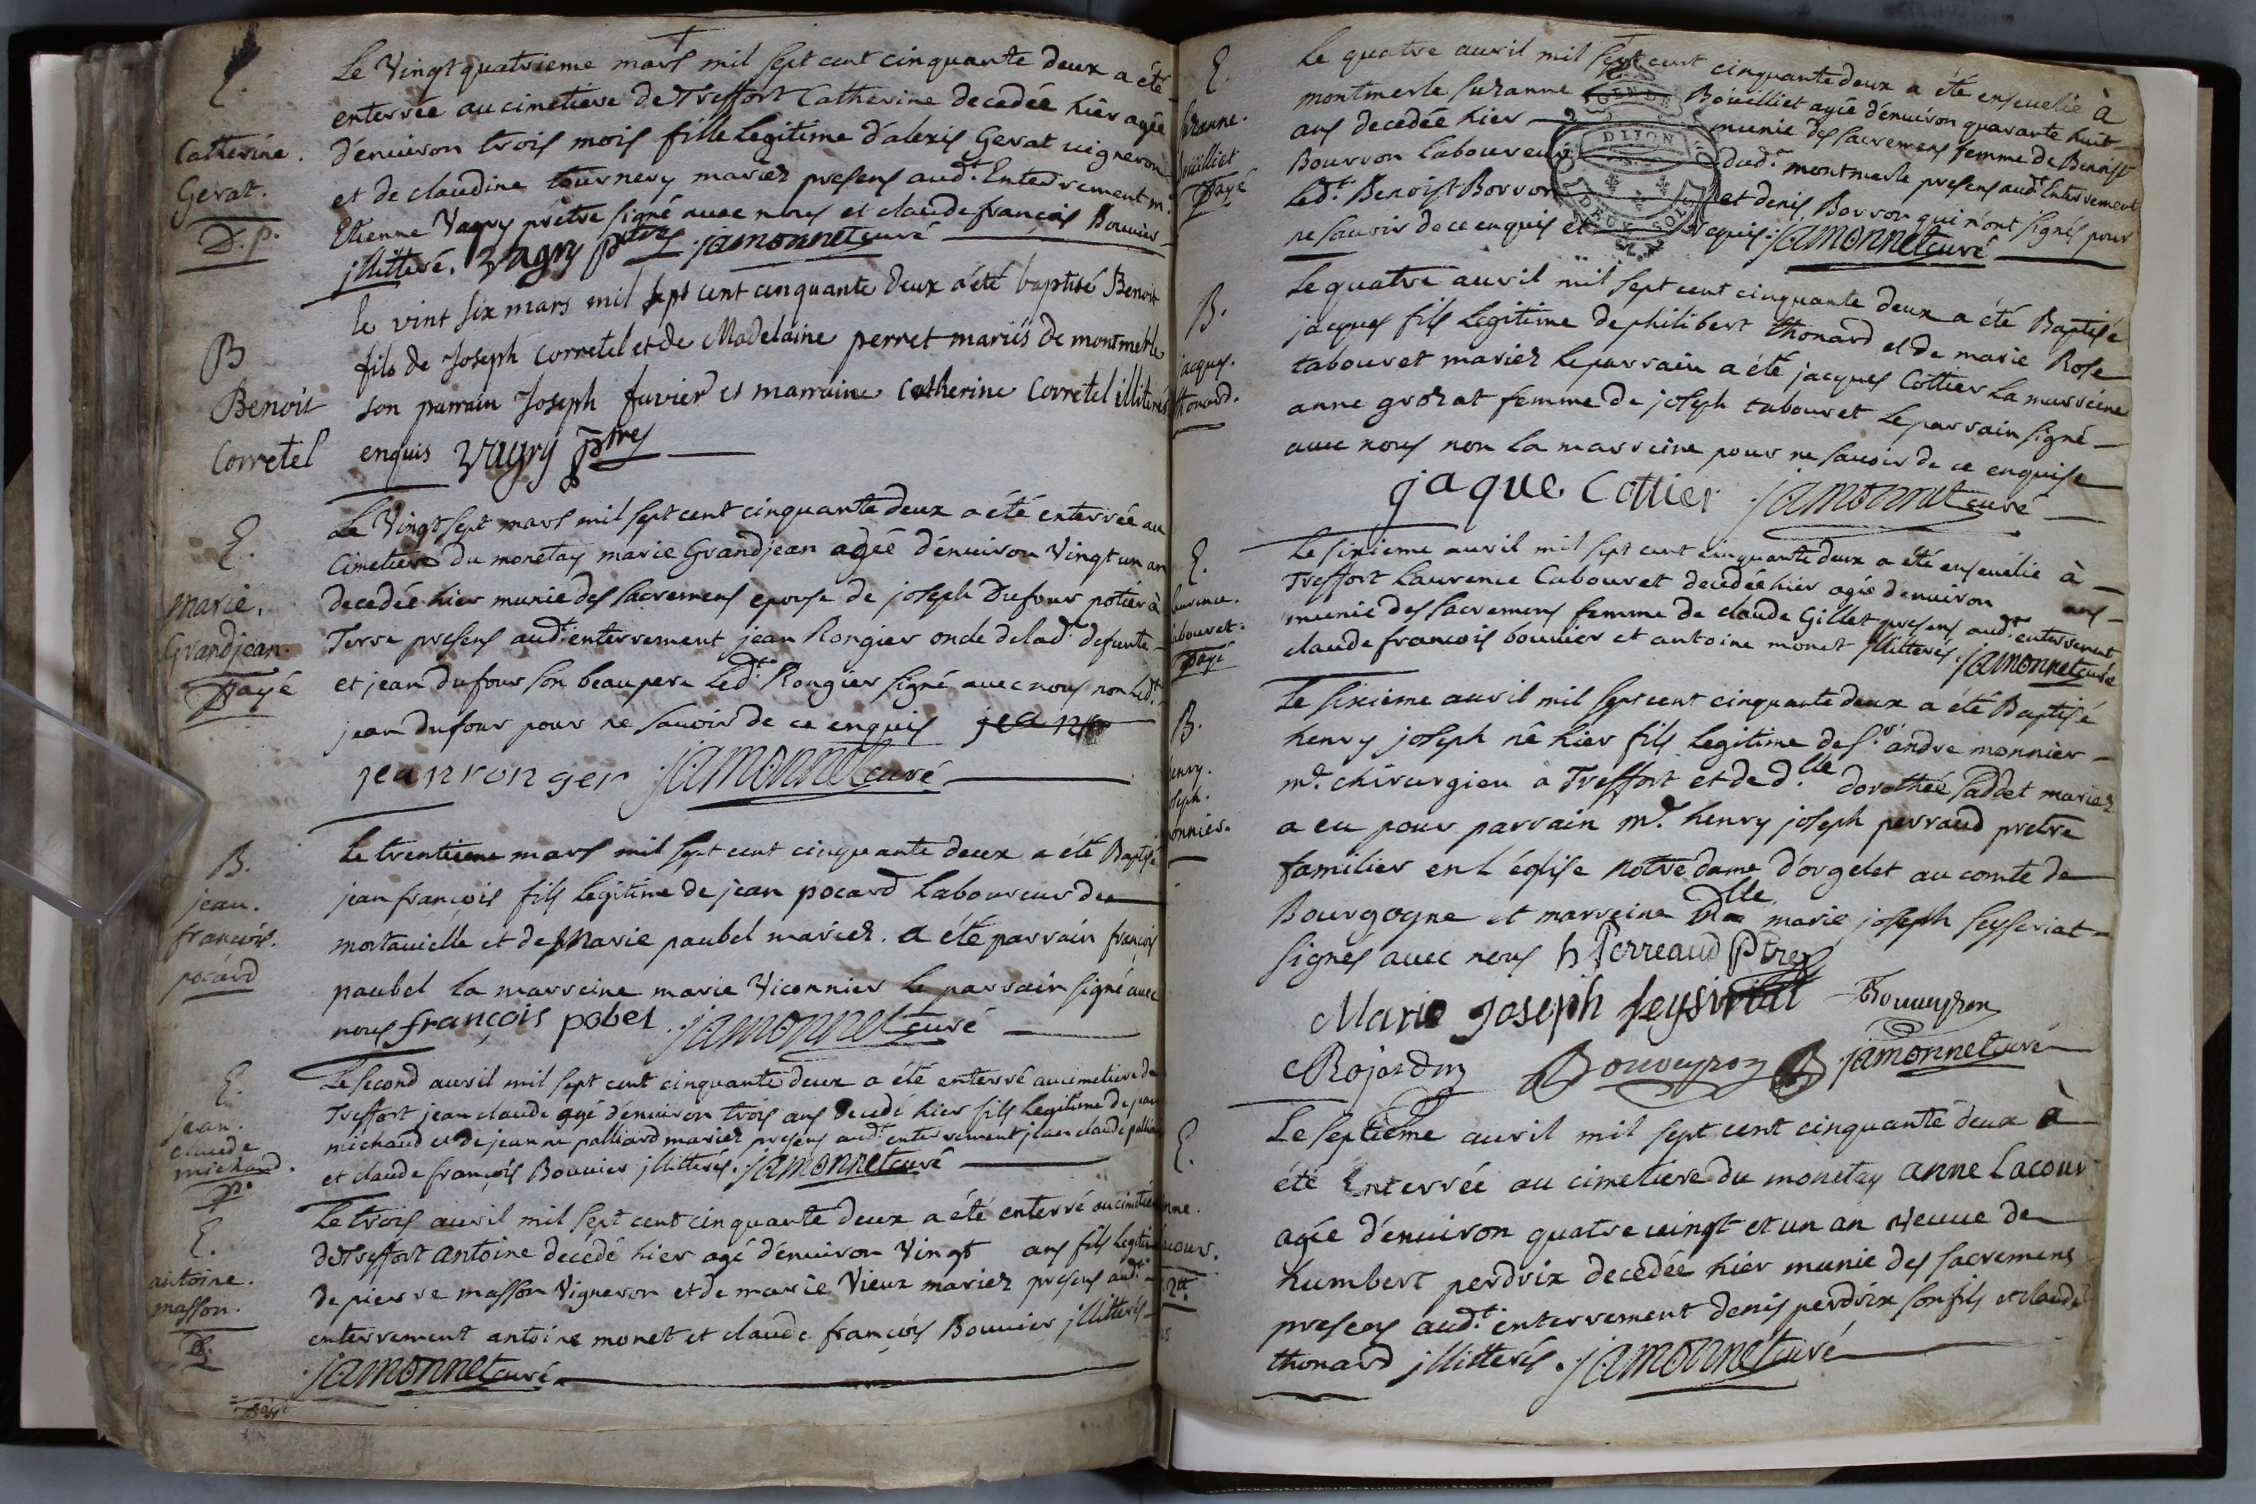 Le Vingt quatrieme mars mil sept cent cinquante deux a été
enterrée au cimetiere de Treffort Catherine decedée hier agée
d'environ trois mois fille legitime d'alexis Gerat vigneron
et de claudine tournery mariez presens aud.t Enterrement m.e
Etienne Vagry prêtre signé avec nous et claude françois Bouvier
jllitteré. Vagry ptre jamonnet curé
E.
Catherine.
Gerat.
D. p.
le vint six mars mil sept cent cinquante deux a été baptisé Benoit
fils de Joseph Corretel et de Madelaine perret mariés de montmerle
son parrain Joseph favier et marraine Catherine Corretel illiterés
enquis Vagry ptre
B
Benoit
Corretel
Le Vingt sept mars mil sept cent cinquante deux a été enterrée au
Cimetiere du monetay marie Grandjean agée d'environ Vingt un an
decedée hier munie des sacremens epouse de joseph Dufour potier à
Terre presens aud.t enterrement jean Rongier oncle de lad.te defunte
et jean dufour son beaupere led.t Rongier signé avec nous non led.t
jean dufour pour ne savoir de ce enquis
jean ronger jamonnet curé
E.
Marie.
Grandjean.
payé
Le trentieme mars mil sept cent cinquante deux a été Baptisé
jean françois fils legitime de jean pocard laboureur de
montavielle et de Marie paubel mariez. a été parrain françois
paubel la marreine marie Viconnier le parrain signé avec
nous françois pobel jamonnet curé
B.
jean.
françois.
pocard
Le second avril mil sept cent cinquante deux a été enterré au cimetiere de
Treffort jean claude agé d'environ trois ans decedé hier fils legitime de jean
michaud et de jeanne palliard mariez presens aud.t enterrement jean claude
et claude françois Bouvier jllitterés. jamonnet curé
E.
jean.
claude
michaud.
p.
Le trois avril mil sept cent cinquante deux a été enterré au cimetiere
de Treffort antoine decedé hier agé d'environ Vingt ans fils legitime
de pierre masson Vigneron et de marie Vieux mariez presens aud.t
enterrement antoine monet et claude françois Bouvier jllitterés
jamonnet curé
E.
antoine.
masson.
Le quatre avril mil sept cent cinquante deux a été ensevelie à
montmerle suzanne Bouilliet agée d'environ quarante huit
ans decedée hier munie des sacremens femme de Benoist
Bourron laboureur dud.t montmerle presens aud.t Enterrement
Led.t Benoist Borron et denis Borron qui n'ont signés pour
ne savoir de ce enquis et requis. jamonnet curé
E.
DIJON
DEUX SOLS
payé
Le quatre avril mil sept cent cinquante deux a été Baptisé
jacques fils legitime de philibert thonard et de marie Rose
tabouret mariez le parrain a été jacques Cottier la marreine
anne grozat femme de joseph tabouret le parrain signé
avec nous non la marreine pour ne savoir de ce enquise
jaque Cottier jamonnet curé
B.
jacques.
thonard.
Le sixieme avril mil sept cent cinquante deux a été ensevelie à
Treffort Laurence Cabouret decedée hier agée d'environ ans
munie des sacremens femme de claude Gillet presens aud.t enterrement
claude françois bouvier et antoine monet jllitterés. jamonnet curé
E.
payé
Le sixieme avril mil sept cent cinquante deux a été Baptisé
henry joseph né hier fils legitime de s.r andre monnier
m.e chirurgien a Treffort et de d.lle dorothée saddet mariez
a eu pour parrain m.e henry joseph perraud pretre
familier en l'église notre dame d'orgelet au comté de
Bourgogne et marreine Dlle marie joseph seysseriat
signés avec nous h Perreaud Ptre
Marie Joseph Seysiriat Bouveyron
Rojardon Bouveyron jamonnet curé
B.
Le septieme avril mil sept cent cinquante deux à
été Enterrée au cimetiere du monetay anne Lacour
agée d'environ quatre vingt et un an veuve de
humbert perdrix decedée hier munie des sacremens
presens aud.t enterrement denis perdrix son fils et claude
thonard jllitterés. jamonnet curé
E.